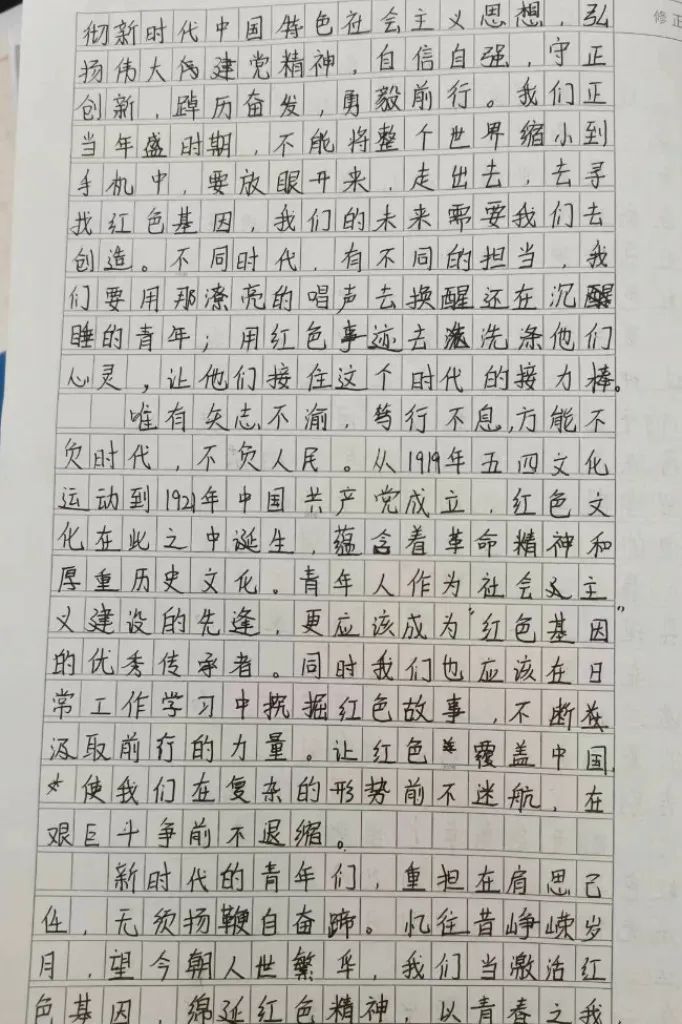 修正
彻新时代中国特色社会主义思想，弘
扬伟大伟建党精神，自信自强，守正
创新，踔厉奋发，勇毅前行。我们正
当年盛时期，不能将整个世界缩小到
手机中，要放眼开来，走出去，去寻
找红色基因，我们的未来需要我们去
创造。不同时代，有不同的担当，我
们要用那潦亮的唱声去换醒还在沉醒
睡的青年；用红色事迹去洗涤他们
心灵，让他们接住这个时代的接力棒。
唯有矢志不渝，笃行不息，方能不
负时代，不负人民。从1919年五四文化
运动到1921年中国共产党成立，红色文
化在此之中诞生，蕴含着革命精神和
厚重历史文化。青年人作为社会主
义建设的先逢，更应该成为“红色基因”
的优秀传承者。同时我们也应该在日
常工作学习中挖掘红色故事，不断
汲取前行的力量。让红色覆盖中国，
使我们在复杂的形势前不迷航，在
艰巨斗争前不退缩。
新时代的青年们，重担在肩思己
任，无须扬鞭自奋蹄。忆往昔峥嵘岁
月，望今朝人世繁华，我们当激活红
色基因，绵延红色精神，以青春之我，